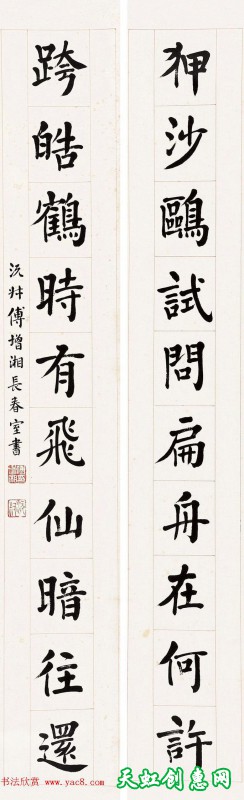 狎沙鷗試問扁舟在何許
跨皓鶴時有飛仙暗往還
沅叔傅增湘長春室書
书法欣赏 www.yac8.com
天虹创惠网